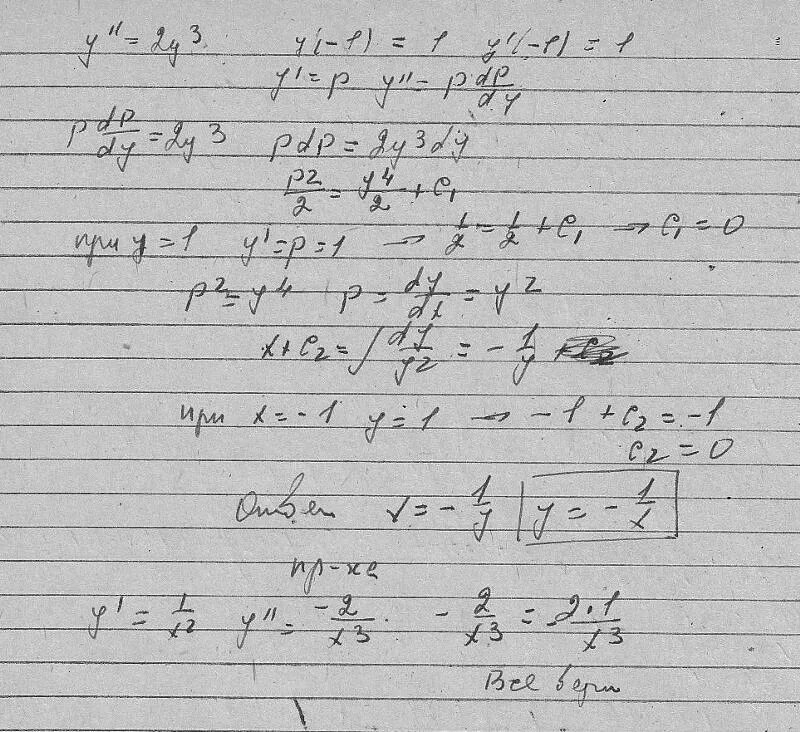 y'' = 2y³ y(-1) = 1 y'(-1) = 1
y' = p y'' = p dp/dy
p dp/dy = 2y³ pdp = 2y³dy
p²/2 = y⁴/2 + C₁
при y = 1 y' = p = 1 → 1/2 = 1/2 + C₁ → C₁ = 0
p² = y⁴ p = dy/dx = y²
x + C₂ = ∫ dy/y² = - 1/y
при x = -1 y = 1 → -1 + C₂ = -1
C₂ = 0
Ответ x = - 1/y y = - 1/x
пр-ка
y' = 1/x² y'' = -2/x³ - 2/x³ = -2·1/x³
Все верно